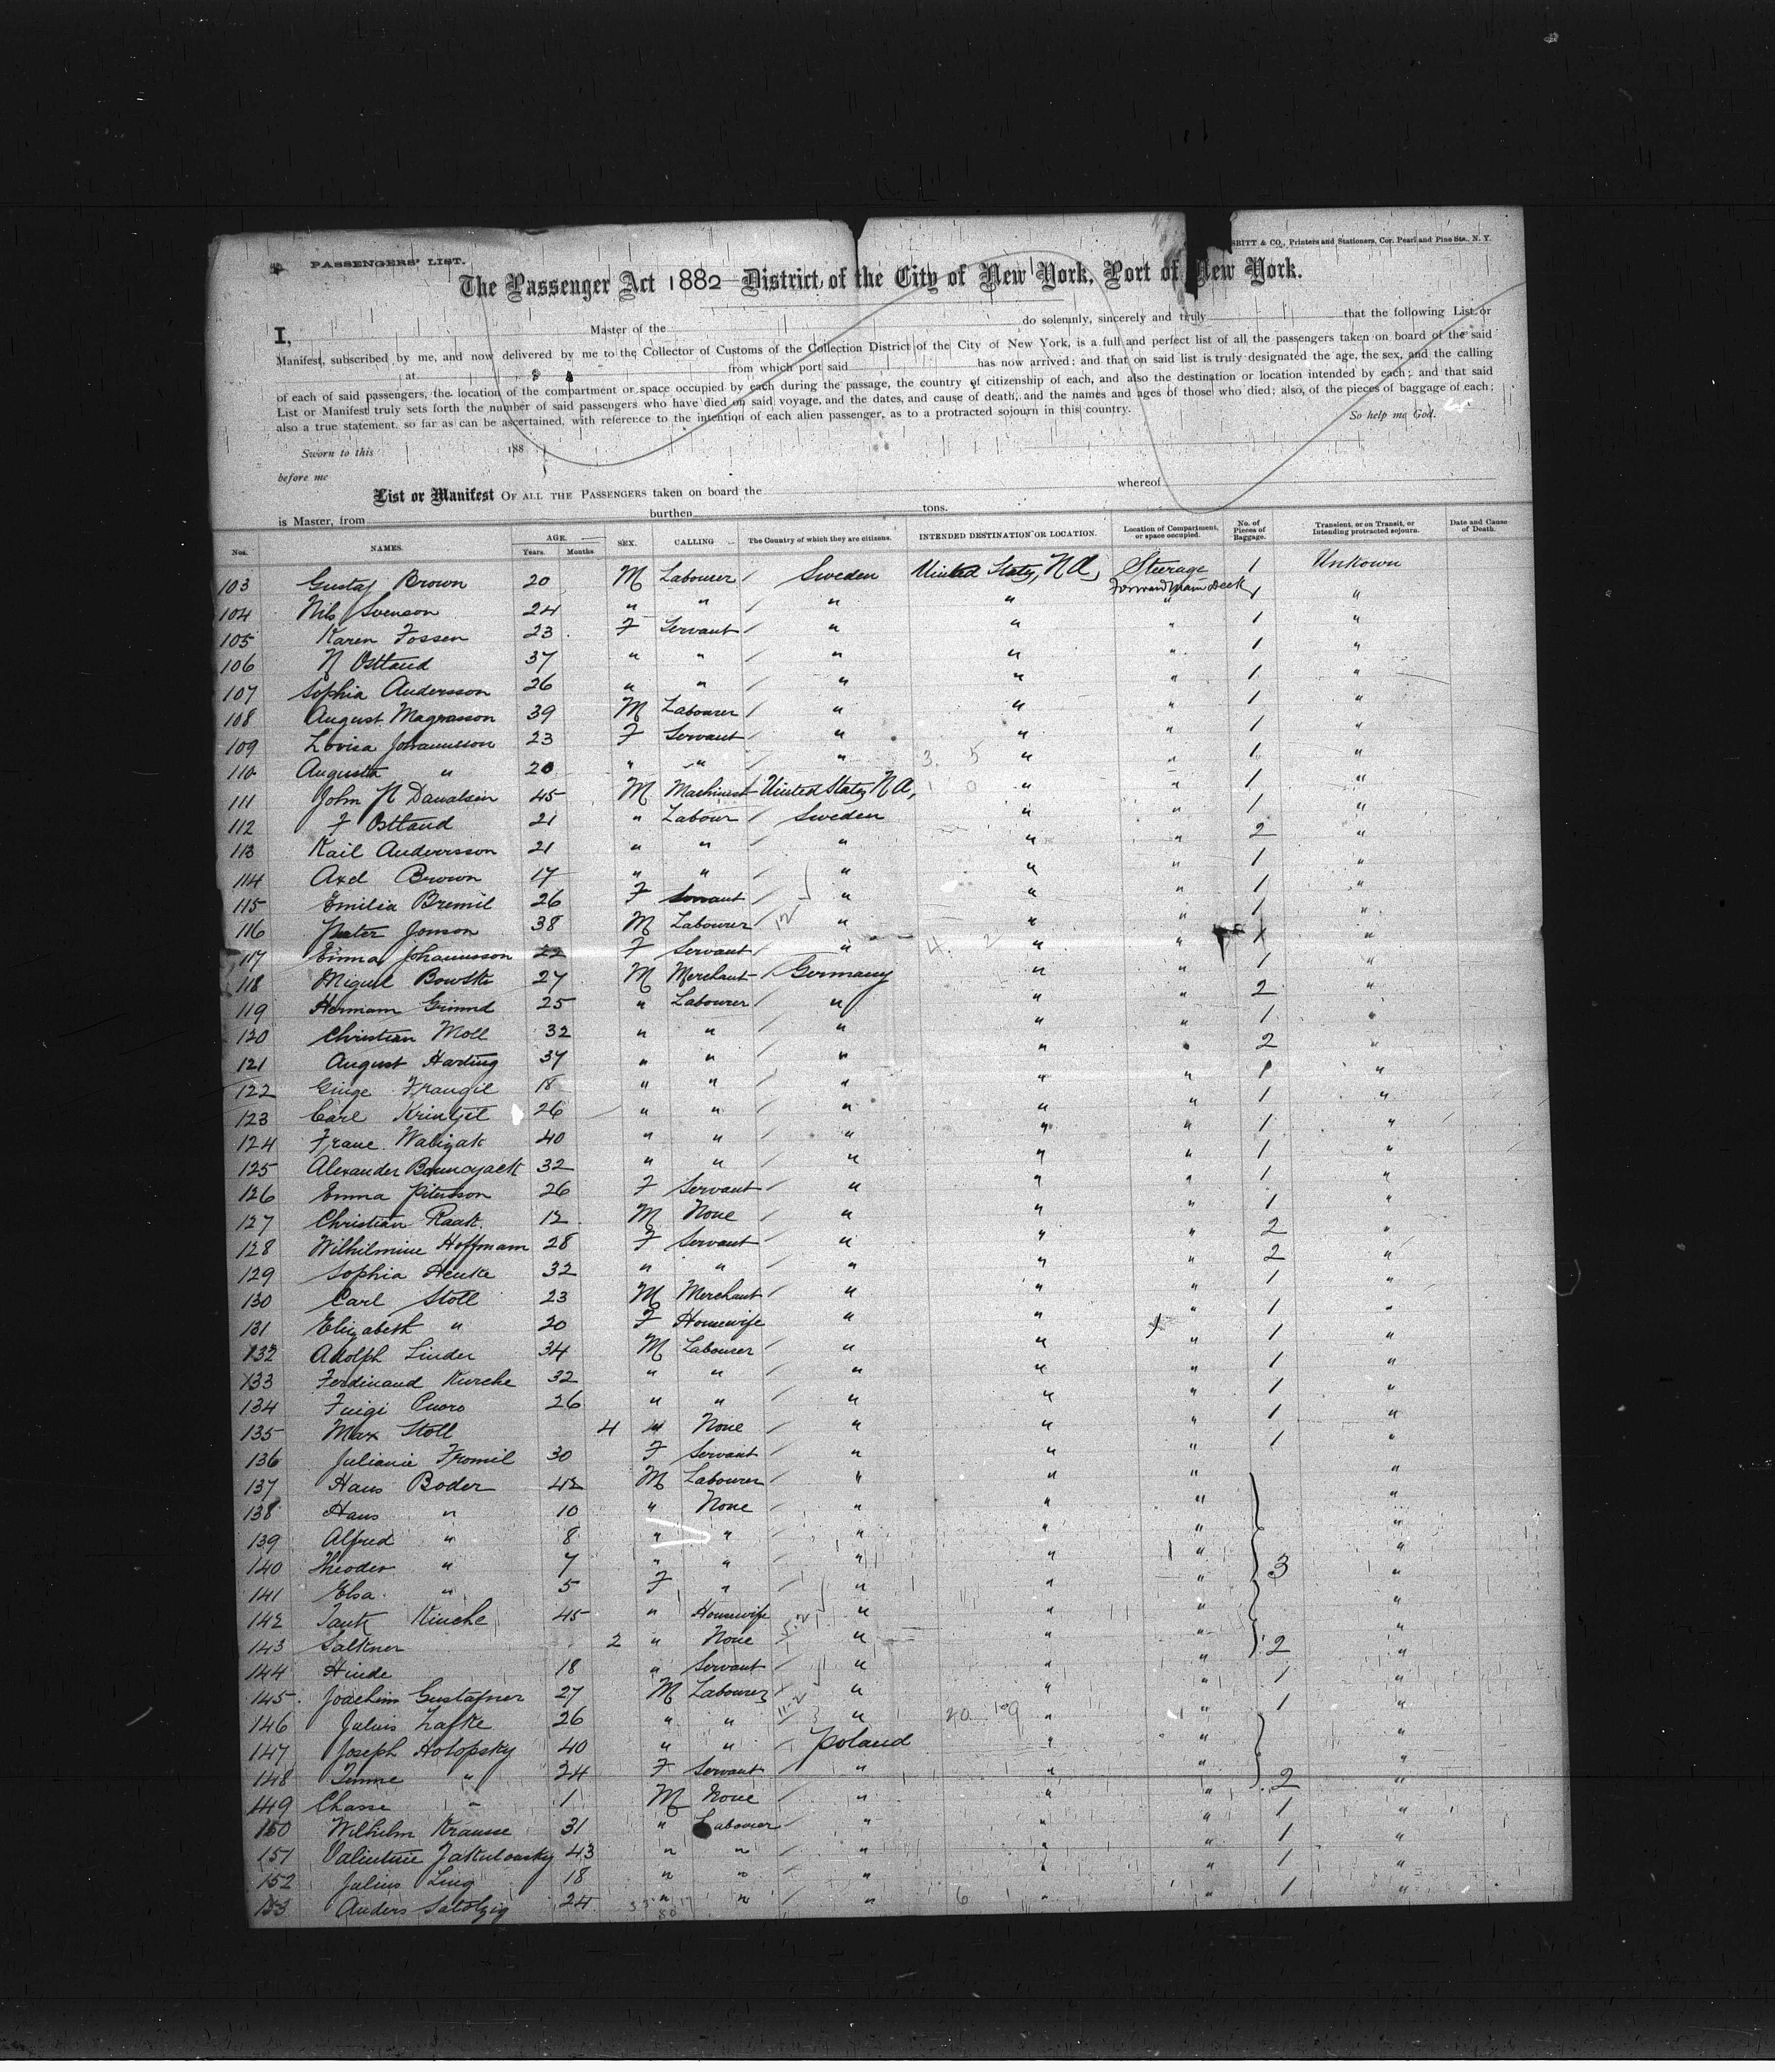 PASSENGERS' LIST.
SBITT & CO., Printers and Stationers, Cor. Pearl and Pine Sts., N. Y.
The Passenger Act 1882 District of the City of New York, Port of New York.
I, Master of the do solemnly, sincerely and truly that the following List or
Manifest, subscribed by me, and now delivered by me to the Collector of Customs of the Collection District of the City of New York, is a full and perfect list of all the passengers taken on board of the said
at from which port said has now arrived; and that on said list is truly designated the age, the sex, and the calling
of each of said passengers, the location of the compartment or space occupied by each during the passage, the country of citizenship of each, and also the destination or location intended by each; and that said
List or Manifest truly sets forth the number of said passengers who have died on said voyage, and the dates, and cause of death, and the names and ages of those who died; also, of the pieces of baggage of each;
also a true statement, so far as can be ascertained, with reference to the intention of each alien passenger, as to a protracted sojourn in this country. So help me God.
Sworn to this 188
before me
List or Manifest OF ALL THE PASSENGERS taken on board the whereof
is Master, from burthen tons.
Nos. NAMES. AGE. Years. Months SEX. CALLING The Country of which they are citizens. INTENDED DESTINATION OR LOCATION. Location of Compartment, or space occupied. No. of Pieces of Baggage. Transient, or on Transit, or Intending protracted sojourn. Date and Cause of Death.
103 Gustaf Brown 20 M Labourer Sweden United States, N A, Steerage 1 Unkown
Forward Main Deck
104 Nils Svenson 24 " " " " " 1 "
105 Karen Fossen 23 F Servant " " " 1 "
106 N Ostlaud 37 " " " " " 1 "
107 Sophia Andersson 26 " " " " " 1 "
108 August Magnasson 39 M Labourer " " " 1 "
109 Lovisa Johannesson 23 F Servant " " " 1 "
110 Augusta " 20 " " " " " 1 "
111 John N Danalsin 45 M Machinest United States N A, " " 1 "
112 F Ostlaud 21 " Labour Sweden " " 1 "
113 Kail Andersson 21 " " " " " 2 "
114 Axel Brown 17 " " " " " 1 "
115 Emilia Bremil 26 F Servant " " " 1 "
116 Peter Jonson 38 M Labourer " " " 1 "
117 Emma Johannsson 22 F Servant " " " 1 "
118 Miguel Bowske 27 M Merchant Germany " " 1 "
119 Hermann Grimd 25 " Labourer " " " 2 "
120 Christian Moll 32 " " " " " 1 "
121 August Harting 37 " " " " " 2 "
122 Ginge Frangil 18 " " " " " 1 "
123 Carl Krintzel 26 " " " " " 1 "
124 Franc Walizak 40 " " " " " 1 "
125 Alexander 32 " " " " " 1 "
126 Emma Pitersson 26 F Servant " " " 1 "
127 Christian Raak 12 M None " " " 1 "
128 Wilhilmine Hoffmann 28 F Servant " " " 2 "
129 Sophia Henke 32 " " " " " 2 "
130 Carl Stoll 23 M Merchant " " " 1 "
131 Elizabeth " 20 F Housewife " " " 1 "
132 Adolph Linder 34 M Labourer " " " 1 "
133 Ferdinand Kurche 32 " " " " " 1 "
134 Fuigi Cuoro 26 " " " " " 1 "
135 Max Stoll 4 " None " " " 1 "
136 Julianie Fromil 30 F Servant " " " 1 "
137 Hans Boder 42 M Labourer " " " "
138 Hans " 10 " None " " " "
139 Alfred " 8 " " " " " "
140 Theodor " 7 " " " " " 3 "
141 Elsa " 5 F " " " " "
142 Tautz Kinche 45 " Housewife " " " "
143 Salkner 2 " None " " " 2 "
144 Hinde 18 " Servant " " " 1 "
145 Joachim Gustafner 27 M Labourer " " " 1 "
146 Julius Zafke 26 " " " " " "
147 Joseph Holopsky 40 " " Poland " " "
148 Tinne " 24 F Servant " " " 2 "
149 Chasse " 1 M None " " " 1 "
150 Wilhilm Krause 31 " Labourer " " " 1 "
151 Valintine Jakulowsky 43 " " " " " 1 "
152 Julius Ling 18 " " " " " 1 "
153 Anders Satolzig 24 " " " " "